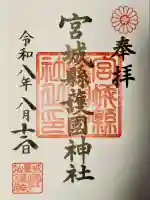 奉拝
宮城縣護國神社
令和八年八月十六日
宮城縣
護國神
社之印